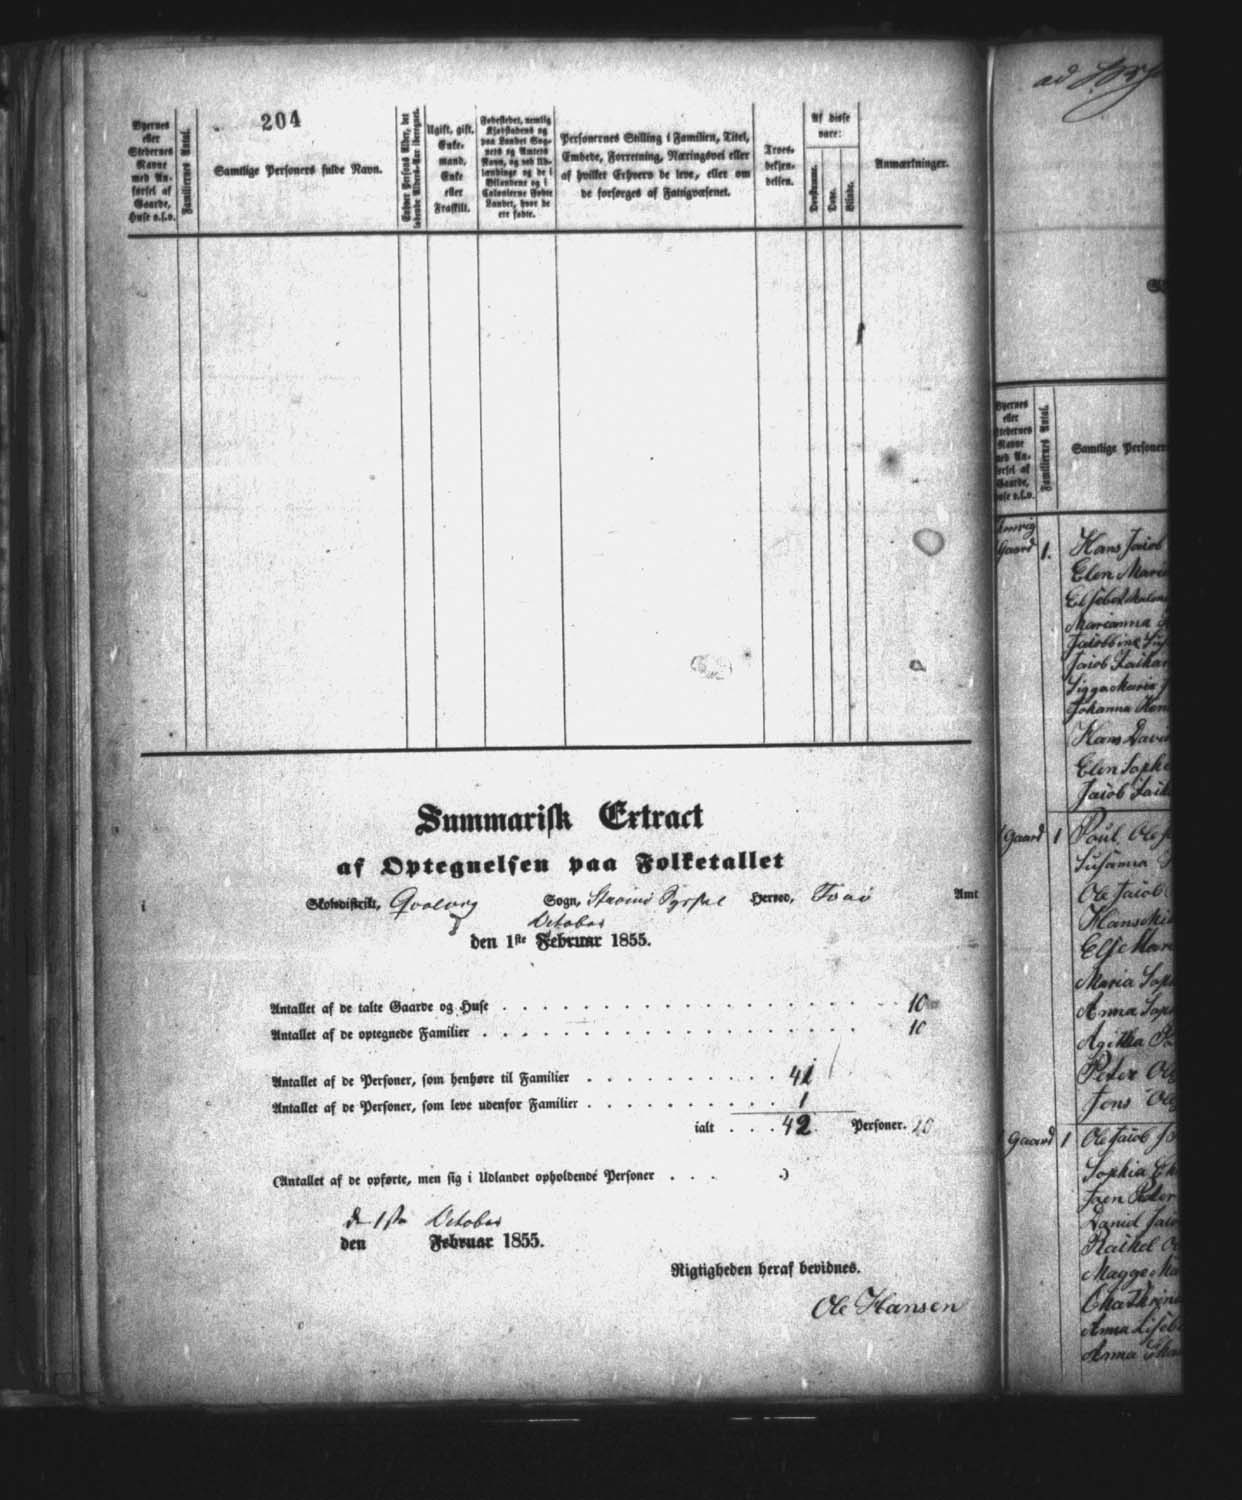 204
Byernes
eller
Stedernes
Navne
med An-
førsel af
Gaarde,
Huse o.s.v.
Familiernes Antal.
Samtlige Personers fulde Navn.
Enhver Persons Alder, det
løbende Alders-Aar iberegnet.
Ugift, gift,
Enke-
mand,
Enke
eller
Fraskilt.
Fødestedet, nemlig
Kjøbstadens og
paa Landet Sog-
nets og Amtets
Navn, og ved Ud-
lændinge og de i
Bilandene og i
Colonierne Fødte
Landet, hvor de
ere fødte.
Personernes Stilling i Familien, Titel,
Embede, Forretning, Næringsvei eller
af hvilket Erhverv de leve, eller om
de forsørges af Fattigvæsenet.
Troes-
bekjen-
delsen.
Af disse
vare:
Døvstumme.
Døve.
Blinde.
Anmærkninger.
Summarisk Extract
af Optegnelsen paa Folketallet
Skoledistrikt, Qvalvig Sogn, Strømø Syssel Herred, Færø Amt
October
den 1ste Februar 1855.
Antallet af de talte Gaarde og Huse 10
Antallet af de optegnede Familier 10
Antallet af de Personer, som henhøre til Familier 41
Antallet af de Personer, som leve udenfor Familier 1
ialt 42 Personer.
(Antallet af de opførte, men sig i Udlandet opholdende Personer .)
d 1ste October
den Februar 1855.
Rigtigheden heraf bevidnes.
Ole Hansen
ad
Byernes
eller
Stedernes
Navne
med An-
førsel af
Gaarde,
Huse o.s.v.
Familiernes Antal.
Samtlige Personer
Gaard 1. Hans Jacob
Elen Maria
Marianna
Johanna
Hans David
Elen Sophia
Gaard 1 Poul Ole
Susanna
Ole Jacob
Maria Soph
Anna Soph
Peter Ole
Jens Ole
Gaard 1 Ole Jacob
Sophia
Daniel Jaco
Rachel
Chathrine
Anna Liseb
Anna